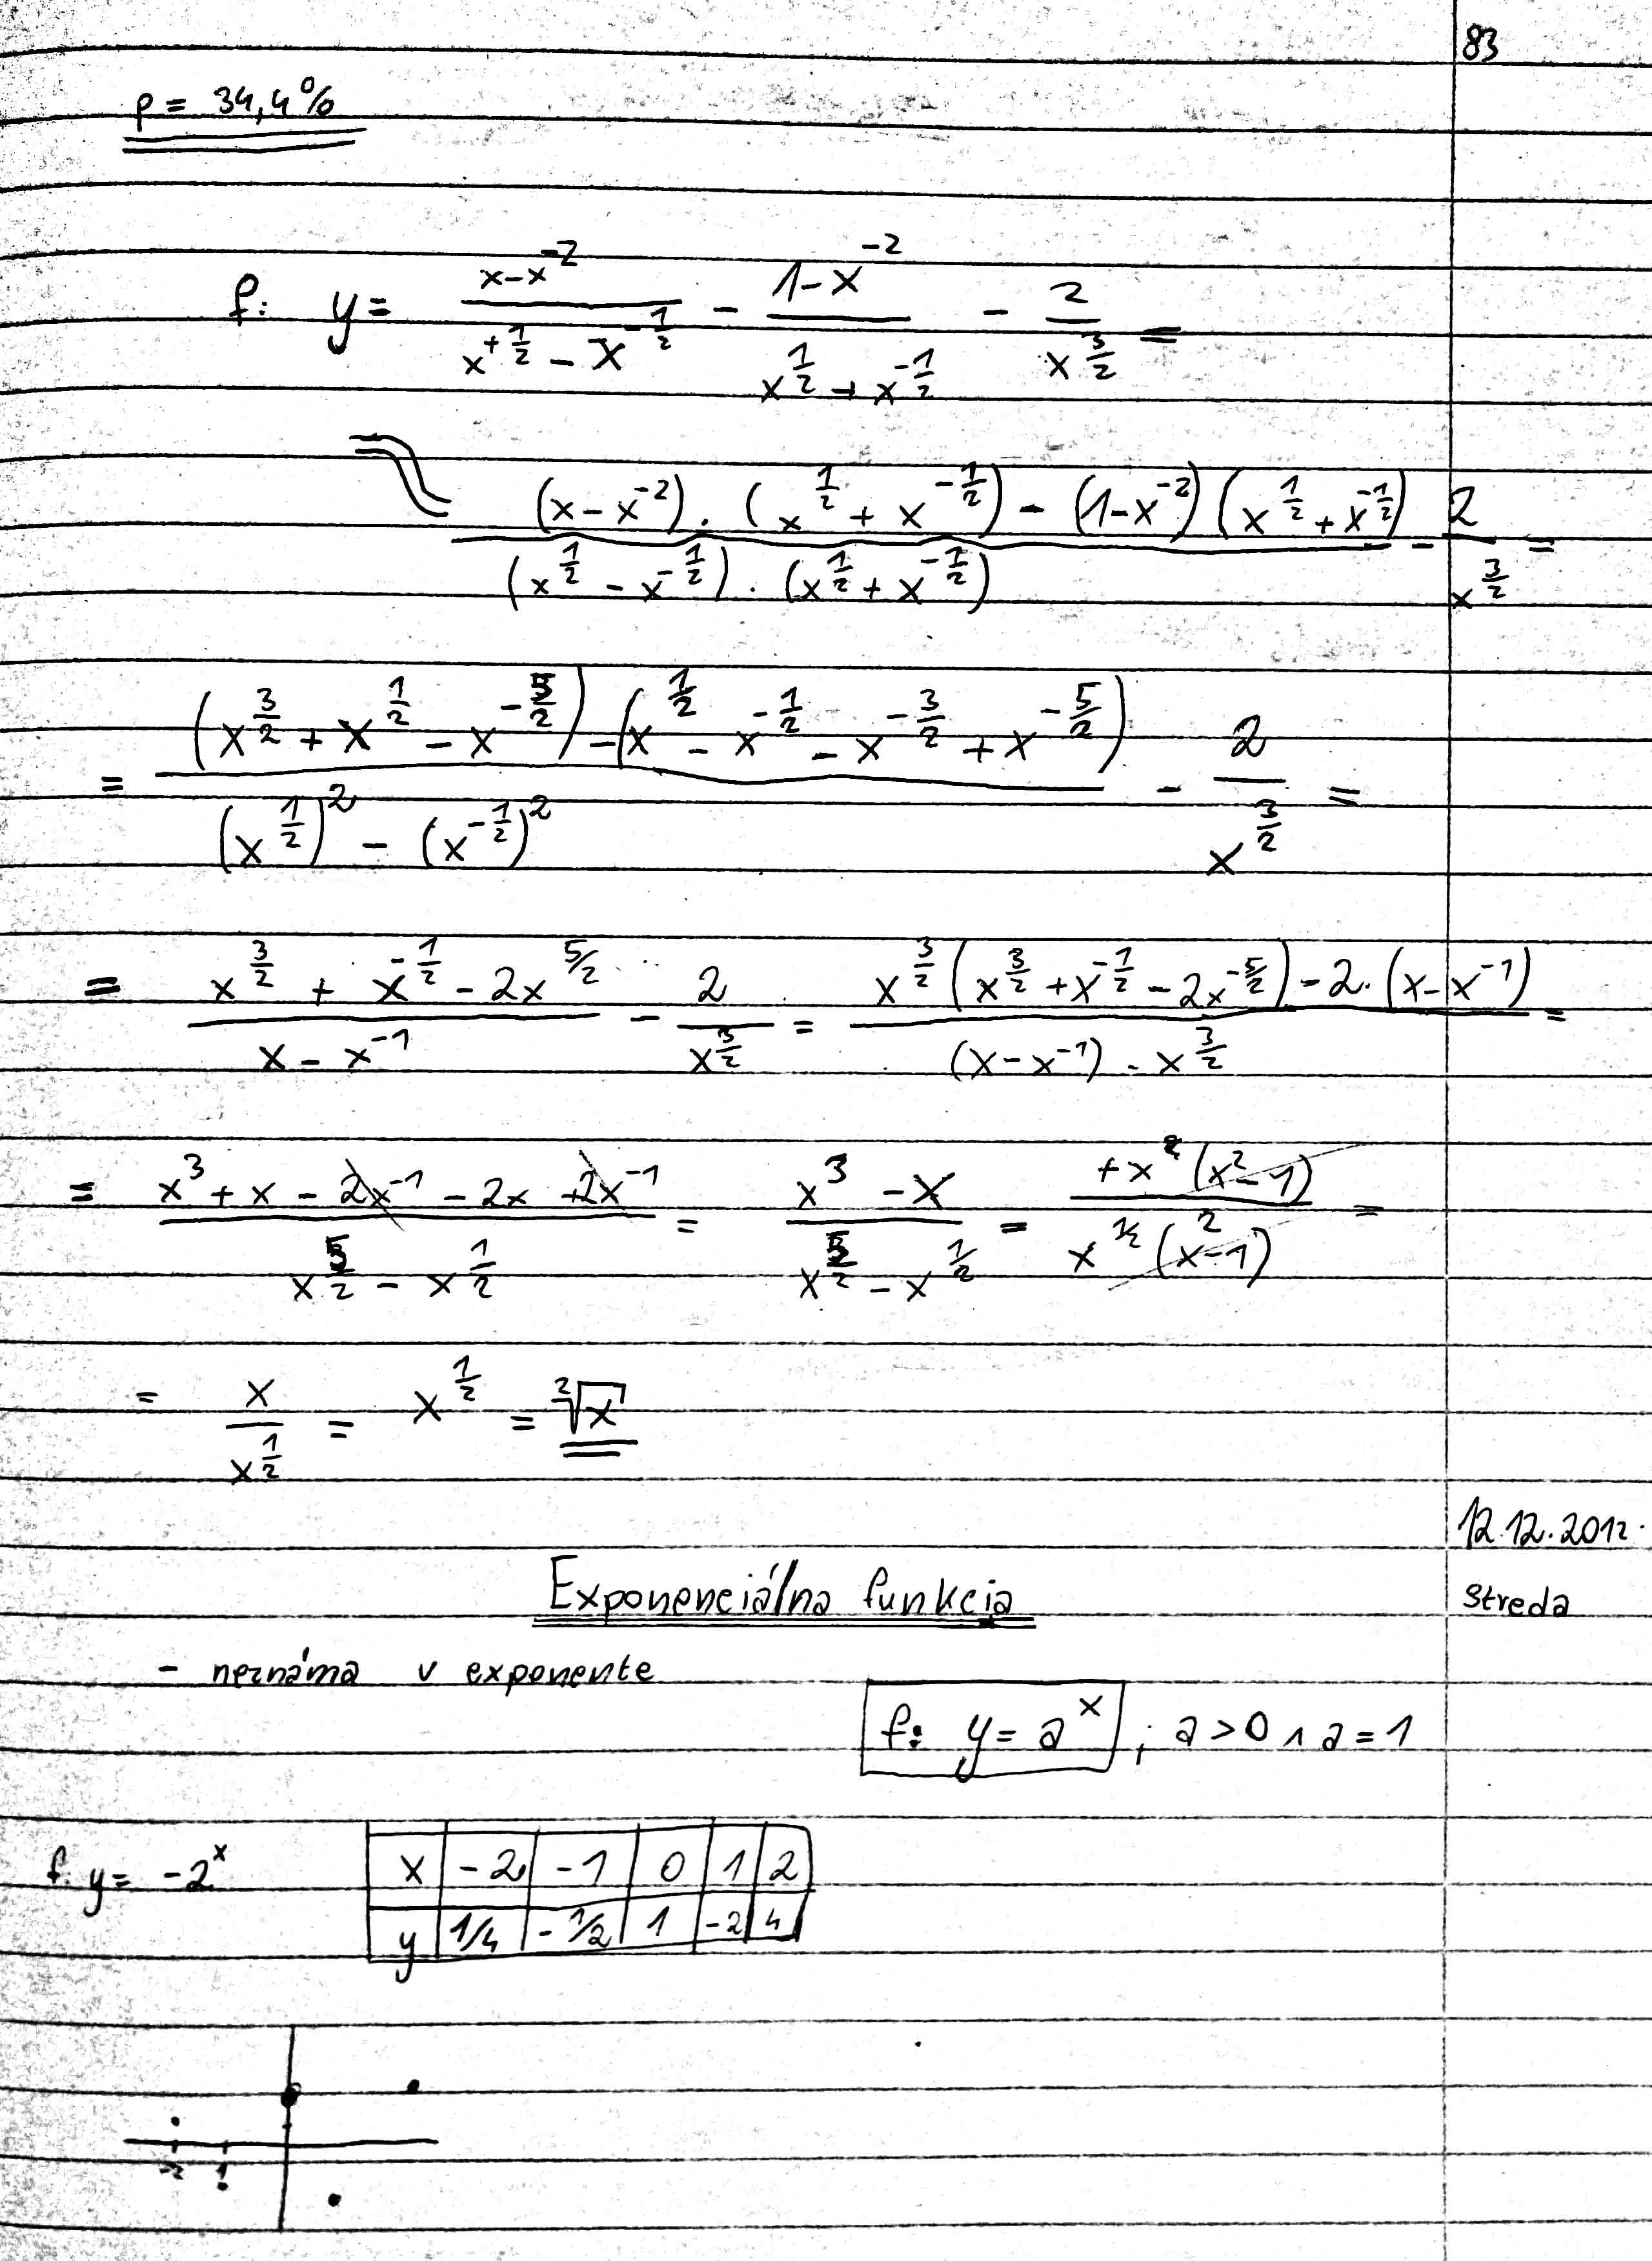 83
p = 34,4%
f: y = \frac{x-x^{-2}}{x^{+\frac{1}{2}} - x^{-\frac{1}{2}}} - \frac{1-x^{-2}}{x^{\frac{1}{2}} + x^{-\frac{1}{2}}} - \frac{2}{x^{\frac{3}{2}}} =
= \frac{(x-x^{-2}) \cdot (x^{\frac{1}{2}} + x^{-\frac{1}{2}}) - (1-x^{-2})(x^{\frac{1}{2}} + x^{-\frac{1}{2}})}{(x^{\frac{1}{2}} - x^{-\frac{1}{2}}) \cdot (x^{\frac{1}{2}} + x^{-\frac{1}{2}})} - \frac{2}{x^{\frac{3}{2}}} =
= \frac{(x^{\frac{3}{2}} + x^{\frac{1}{2}} - x^{-\frac{5}{2}}) - (x^{\frac{1}{2}} - x^{-\frac{1}{2}} - x^{-\frac{3}{2}} + x^{-\frac{5}{2}})}{(x^{\frac{1}{2}})^2 - (x^{-\frac{1}{2}})^2} - \frac{2}{x^{\frac{3}{2}}} =
= \frac{x^{\frac{3}{2}} + x^{-\frac{1}{2}} - 2x^{5/2}}{x - x^{-1}} - \frac{2}{x^{\frac{3}{2}}} = \frac{x^{\frac{3}{2}}(x^{\frac{3}{2}} + x^{-\frac{1}{2}} - 2x^{-\frac{5}{2}}) - 2 \cdot (x - x^{-1})}{(x - x^{-1}) \cdot x^{\frac{3}{2}}} =
= \frac{x^3 + x - 2x^{-1} - 2x + 2x^{-1}}{x^{\frac{5}{2}} - x^{\frac{1}{2}}} = \frac{x^3 - x}{x^{\frac{5}{2}} - x^{\frac{1}{2}}} = \frac{+x(x^2-1)}{x^{1/2}(x^2-1)} =
= \frac{x}{x^{\frac{1}{2}}} = x^{\frac{1}{2}} = \sqrt[2]{x}
12.12.2012.
Exponenciálna funkcia streda
- neznáma v exponente
f: y = a^x ; a > 0 ∧ a = 1
f: y = -2^x
x -2 -1 0 1 2
y 1/4 -1/2 1 -2 4
-2 1